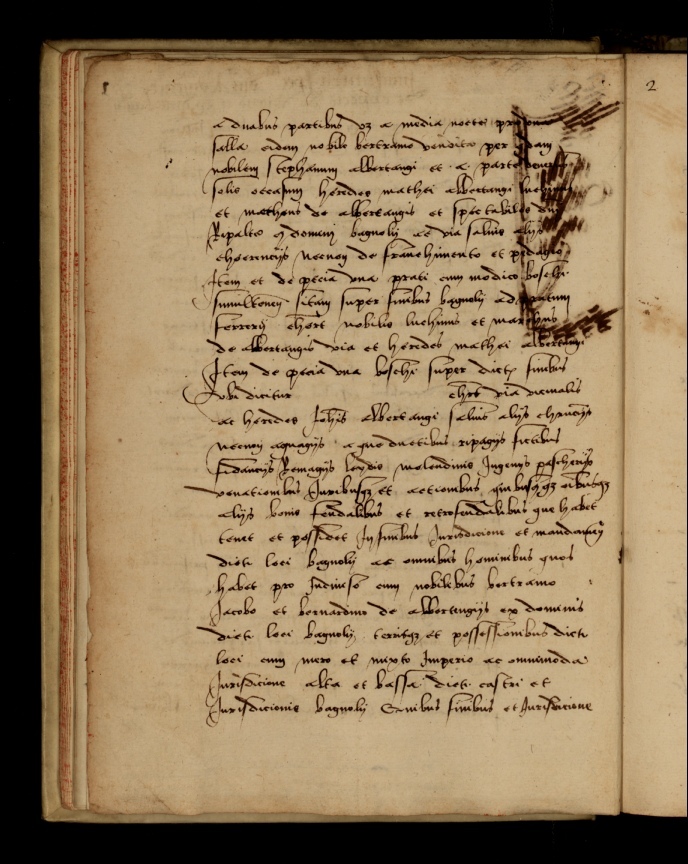 2
a duabus partibus vz a media nocte
salla eidem nobili bertramo vendita per
nobilem stephanum albertangi et a parte
solis occasum heredes mathei albertangi
et matheus de albertangis et spectabiles
Ripalto domini bagnolij ac via salvis alijs
choerencijs necnon de franchimento et pedagio
Item et de pecia una prati cum modico boschi
simultenen sitam super finibus bagnolij ad pratum
ferrerij choret nobilis luchinus et
de albertangis via et heredes mathei albertangi
Item de pecia una boschi super dictis finibus
ubi dicitur choret via vicinalis
ac heredes Johis albertangi salvis alijs
necnon aquagijs aqueductibus ripagijs fictibus
fidancijs leydis molendinis Ingenijs pascherijs
venationibus Juribusqz et actionibus quibusqz
alijs bonis feudalibus et retrofeudalibus que habet
tenet et possidet In finibus Jurisdicione et
dicti loci bagnolij ac omnibus hominibus quos
habet pro Indiviso cum nobilibus bertramo
Jacobo et bernardino de albertengijs ex dominis
dicti loci bagnolij et possessionibus dicti
loci cum mero et mixto Imperio ac omnimoda
Jurisdicione alta et bassa dicti castri et
Jurisdicionis bagnolij Quibus finibus et Jurisdicione